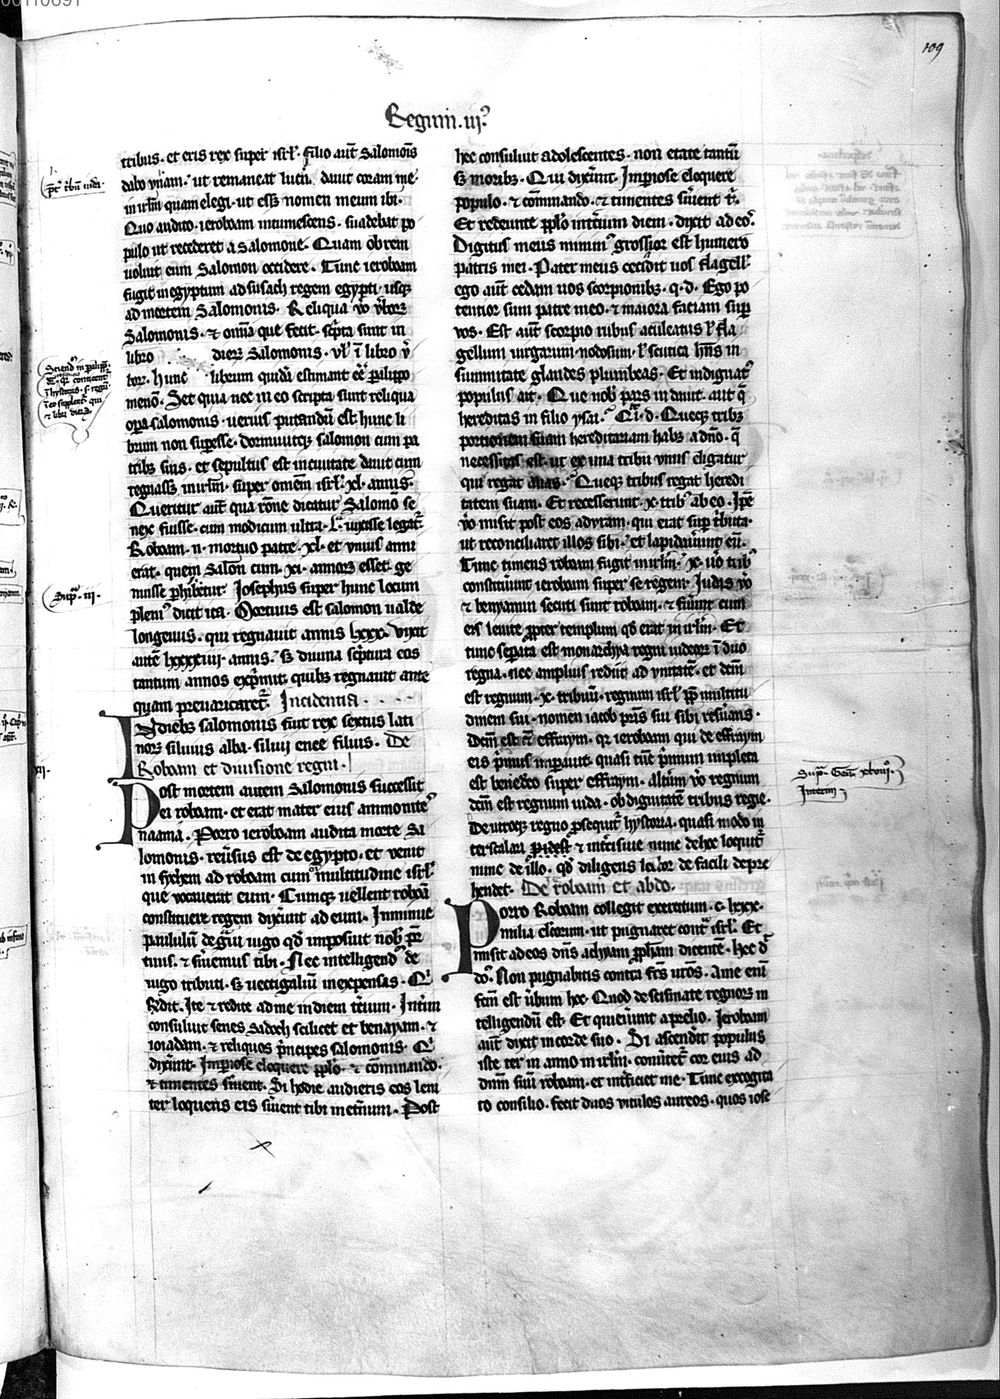 109
Regum .iij.
tribus. et eris rex super isrl'. Filio aut Salomonis
dabo vnam. ut remaneat lucerna dauit coram me
in irlm quam elegi. ut esset nomen meum ibi.
Quo audito. ieroboam intumescens. suadebat po
pulo ut recederet a Salomone. Quam ob rem
uoluit eum Salomon occidere. Tunc ieroboam
fugit in egyptum ad susach regem egypti. usque
ad mortem Salomonis. Reliqua vo verborum
Salomonis. et omnia que fecit. scripta sunt in
libro dierum Salomonis. vel in libro v
bor. Hunc librum quidam estimant esse paralippo
menon. Set quia nec in eo scripta sunt reliqua
opera salomonis. uerius putandum est hunc li
brum non superesse. dormiuitque salomon cum pa
tribus suis. et sepultus est in ciuitate dauit cum
regnasset in irlm. super omnem isrl'. xl. annis.
Queritur aut qua ratione dicatur Salomon se
nex fuisse. cum modicum ultra .L. uixisse legatur.
Roboam .n. mortuo patre .xl. et vnius anni
erat. quem Salomon cum .xi. annorum esset. ge
nuisse perhibetur. Josephus super hunc locum
plenius dicit ita. Mortuus est salomon ualde
longeuus. qui regnauit annis lxxx. vixit
autem lxxxxiiij. annis. sed diuina scriptura eos
tantum annos exprimit. quibus regnauit ante
quam preuaricaretur. Incidentia.
In diebus salomonis fuit rex sextus lati
norum siluius alba. siluij enee filius. De
Roboam et diuisione regni.
Post mortem autem Salomonis successit
ei roboam. et erat mater eius ammonites
naama. Porro ieroboam audita morte Sa
lomonis. reuersus est de egypto. et venit
in sychem ad roboam cum multitudine isrl'.
que vocauerat eum. Cumque uellent roboam
constituere regem dixerunt ad eum. Imminue
paululum de graui iugo quod imposuit nobis pater
tuus. et seruiemus tibi. Nec intelligendum de
iugo tributi. sed uectigalium in expensas. Qui
respondit. Ite et redite ad me in diem tertium. Interim
consiluit senes Sadoch scilicet et benayam. et
ioiadam. et reliquos principes salomonis. Qui
dixerunt. Imperiose eloquere populo. et commando.
et timentes seruient. Si hodie audieris eos leni
ter loquens eis seruient tibi in eternum. Post
hec consiluit adolescentes. non etate tantum
sed moribus. Qui dixerunt. Imperiose eloquere
populo. et commando. et timentes seruient tibi.
Et redeunte populo in tertium diem. dixit ad eos.
Digitus meus minimus grossior est humero
patris mei. Pater meus cecidit uos flagellis
ego aut cedam uos scorpionibus. q. d. Ego po
tentior sum patre meo. et maiora faciam super
vos. Est aut scorpio rubus aculeatus vel fla
gellum uirgarum nodosum. vel scutica habens in
summitate glandes plumbeas. Et indignatus
populus ait. Que nobis pars in dauit. aut que
hereditas in filio ysai. Quasi d. Queque tribus
portionem suam hereditariam habet a domino. que
necessitas est. ut ex una tribu vnus eligatur
qui regat alias. Queque tribus regat heredi
tatem suam. Et recesserunt .x. tribus ab eo. Ipse
vo misit post eos adyram. qui erat super tributa.
ut reconciliaret illos sibi. et lapidauerunt eum.
Tunc timens roboam fugit in irlm. x. uo tribus
constituunt ieroboam super se regem. Judas vo
et beniamin secuti sunt roboam. et fuerunt cum
eis leuite propter templum quod erat in irlm. Et
tunc separata est monarchya regni iudeorum in duo
regna. nec amplius rediit ad vnitatem. et dictum
est regnum .x. tribuum. regnum isrl' propter multitu
dinem sui. nomen iacob patris sui sibi reseruans.
Dictum est et effraym. quia ieroboam qui de effraym
eis primus imperauit. quasi tunc primum impleta
est benedictio super effraym. alterum vo regnum
dictum est regnum iuda. ob dignitatem tribus regie.
De utroque regno prosequitur hystoria. quasi modo in
terscalari et intercisiue nunc de hoc loquitur
nunc de illo. quod diligens lector de facili depre
hendet. De roboam et abdo.
Porro Roboam collegit exercitum .c. lxxx.
milia electorum. ut pugnaret contra isrl'. Et
misit ad eos dominus achyam prophetam dicentem. Hec dicit
dominus. Non pugnabitis contra fratres uestros. A me enim
factum est uerbum hoc. Quod de scissione regnorum in
telligendum est. Et quieuerunt a prelio. Jeroboam
aut dixit in corde suo. Si ascenderit populus
iste ter in anno in irlm. conuertetur cor eius ad
dominum suum roboam. et interficiet me. Tunc excogita
to consilio. fecit duos vitulos aureos. quos iose
Supra .iij.
Supra Gen. xlviij.